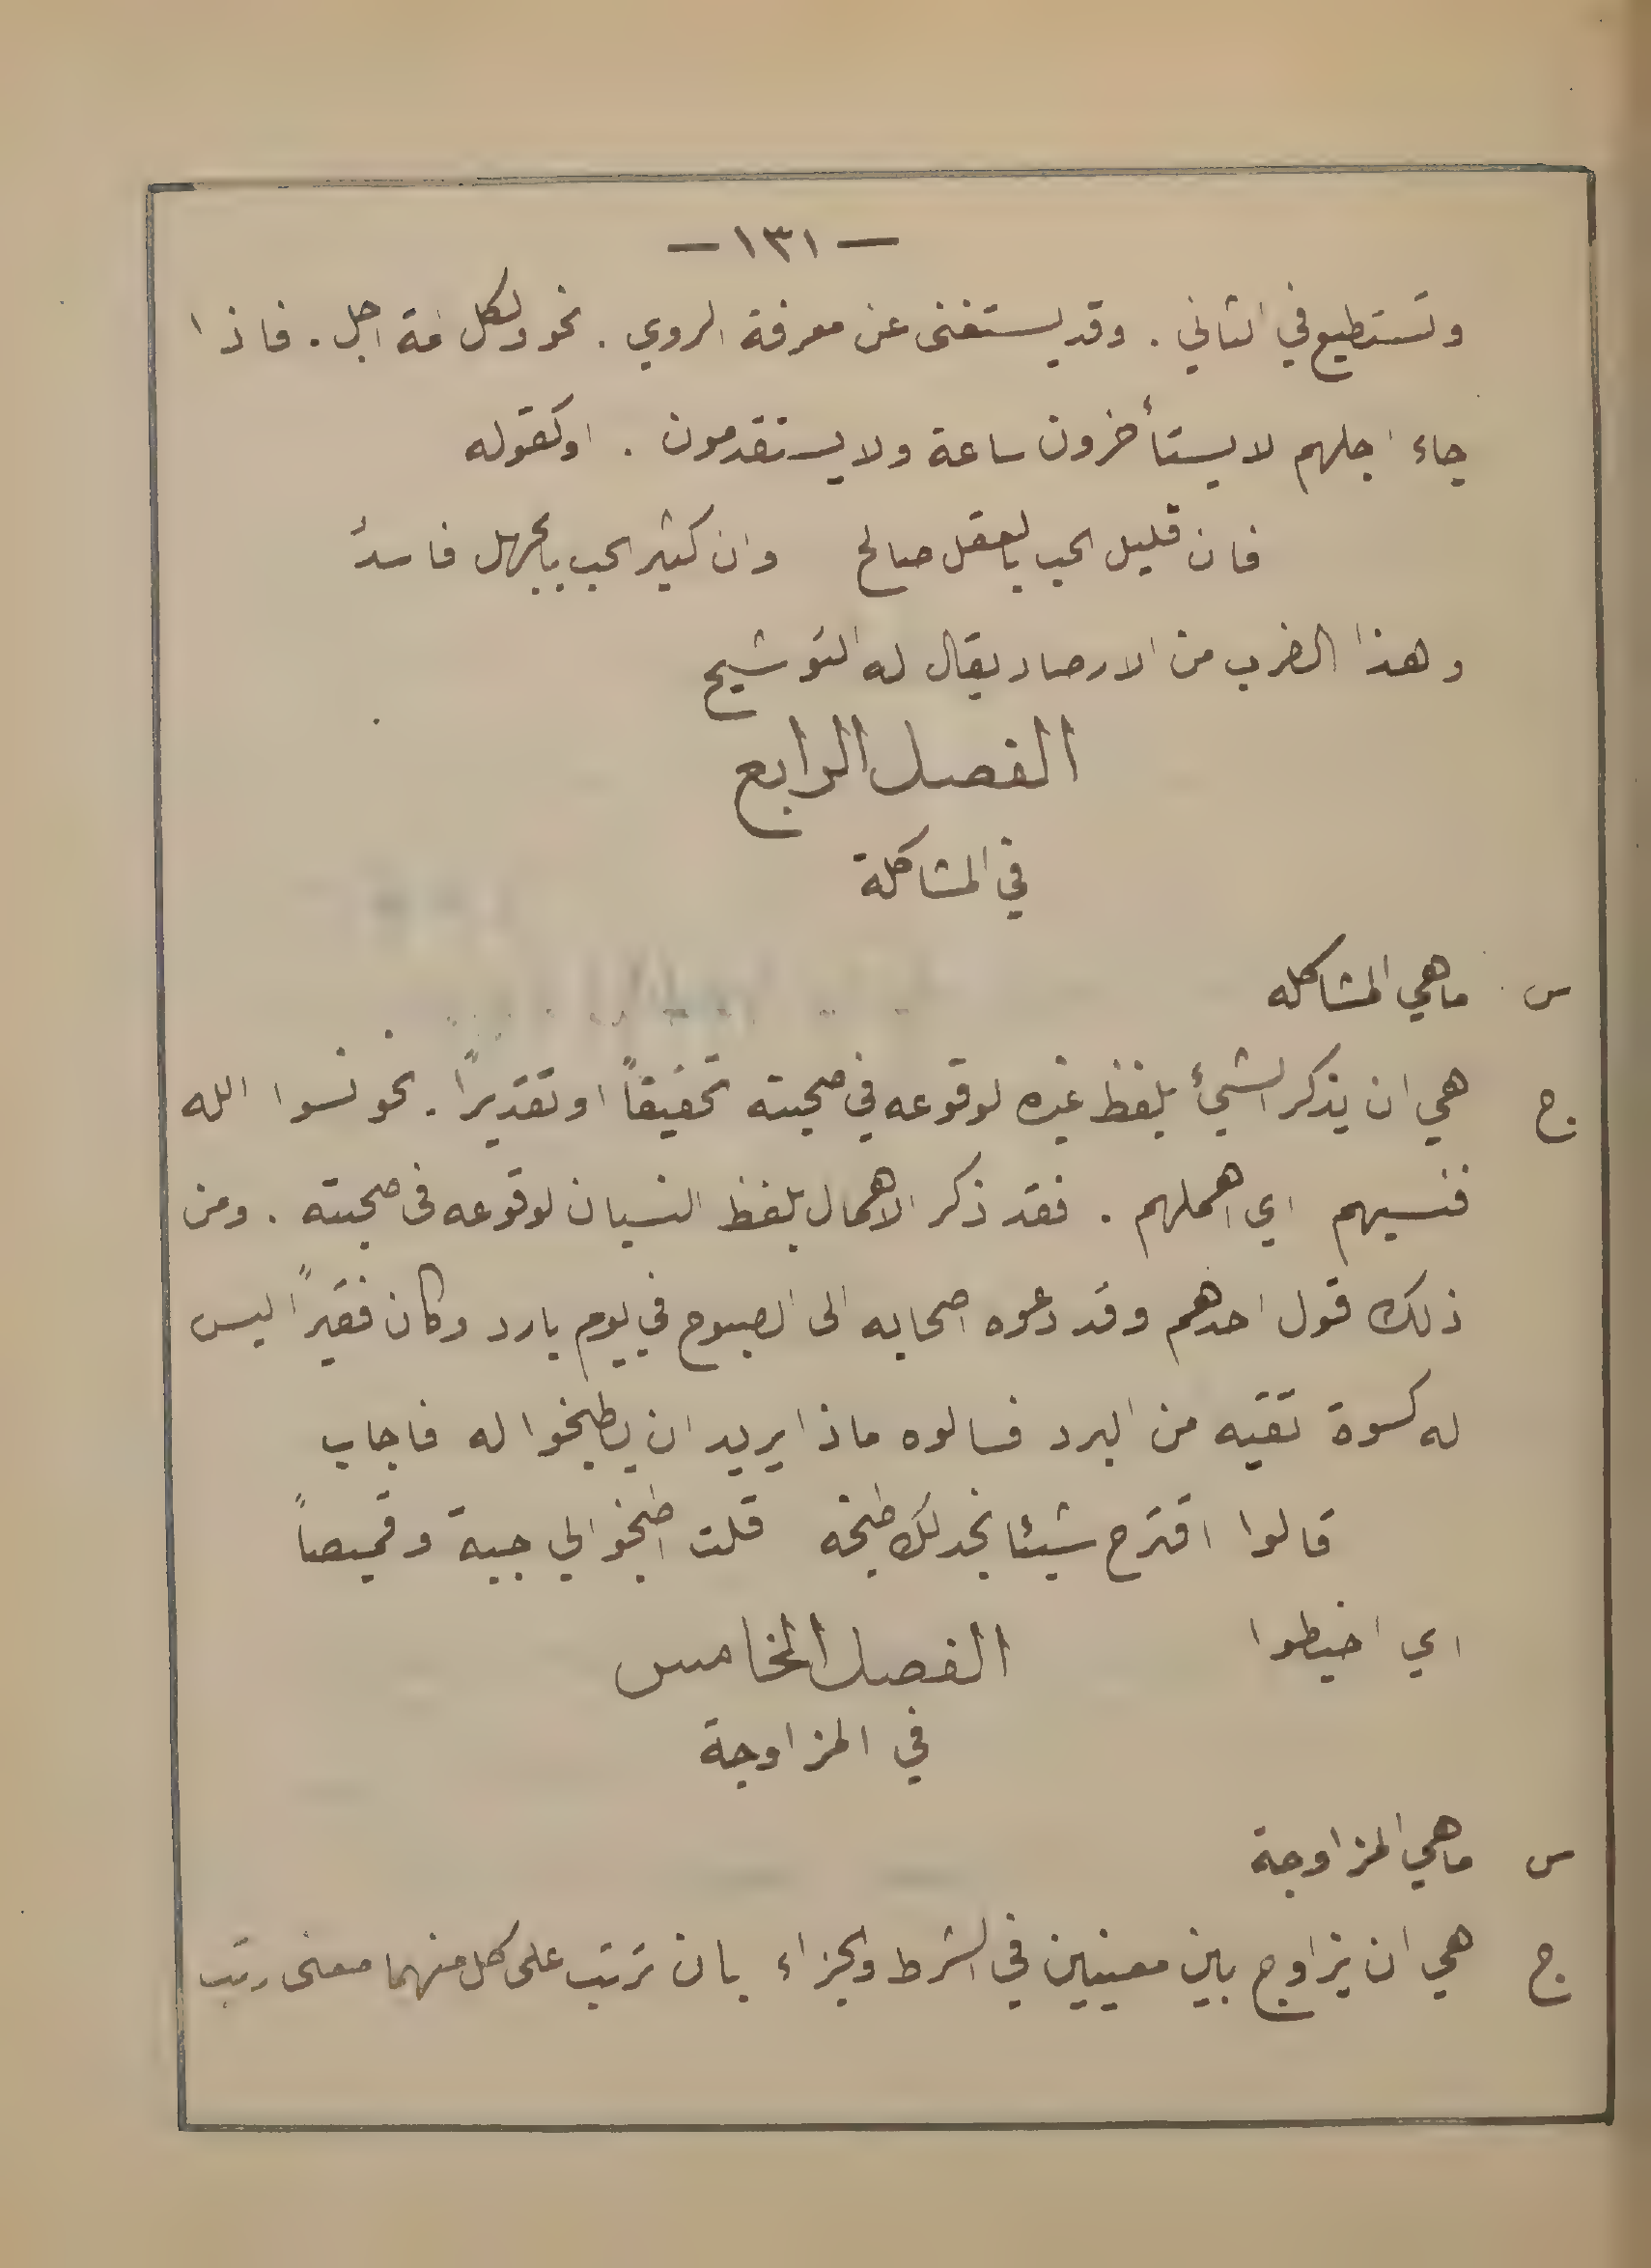 — ١٣١ —
وتستطيع في الثاني . وقد يستغنى عن معرفة الروي . نحو ولكل امة اجل . فاذا
جاء اجلهم لا يستأخرون ساعة ولا يستقدمون . او كقوله
فان قليل الحب بالعقل صالح وان كثير الحب بالجهل فاسدُ
وهذا الضرب من الارصاد يقال له التوشيح
الفصل الرابع
في المشاكلة
س ما هي المشاكله
ج هي ان يذكر الشيئ بلفظ غيره لوقوعه في صحبته تحقيقاً او تقديراً . نحو نسوا الله
فنسيهم اي اهملهم . فقد ذكر الاهمال بلفظ النسيان لوقوعه في صحبته . ومن
ذلك قول احدهم وقد دعوه اصحابه الى الصبوح في يوم بارد وكان فقيراً ليس
له كسوة تقيه من البرد فسالوه ماذا يريد ان يطبخوا له فاجاب
قالوا اقترح شيئا نجد لك طبخه قلت اطبخوا لي جبة وقميصاً
اي اخيطوا
الفصل الخامس
في المزاوجة
س ما هي المزاوجة
ج هي ان يزاوج بين معنيين في الشرط والجزاء بان ترتب على كل منهما معنى رتب